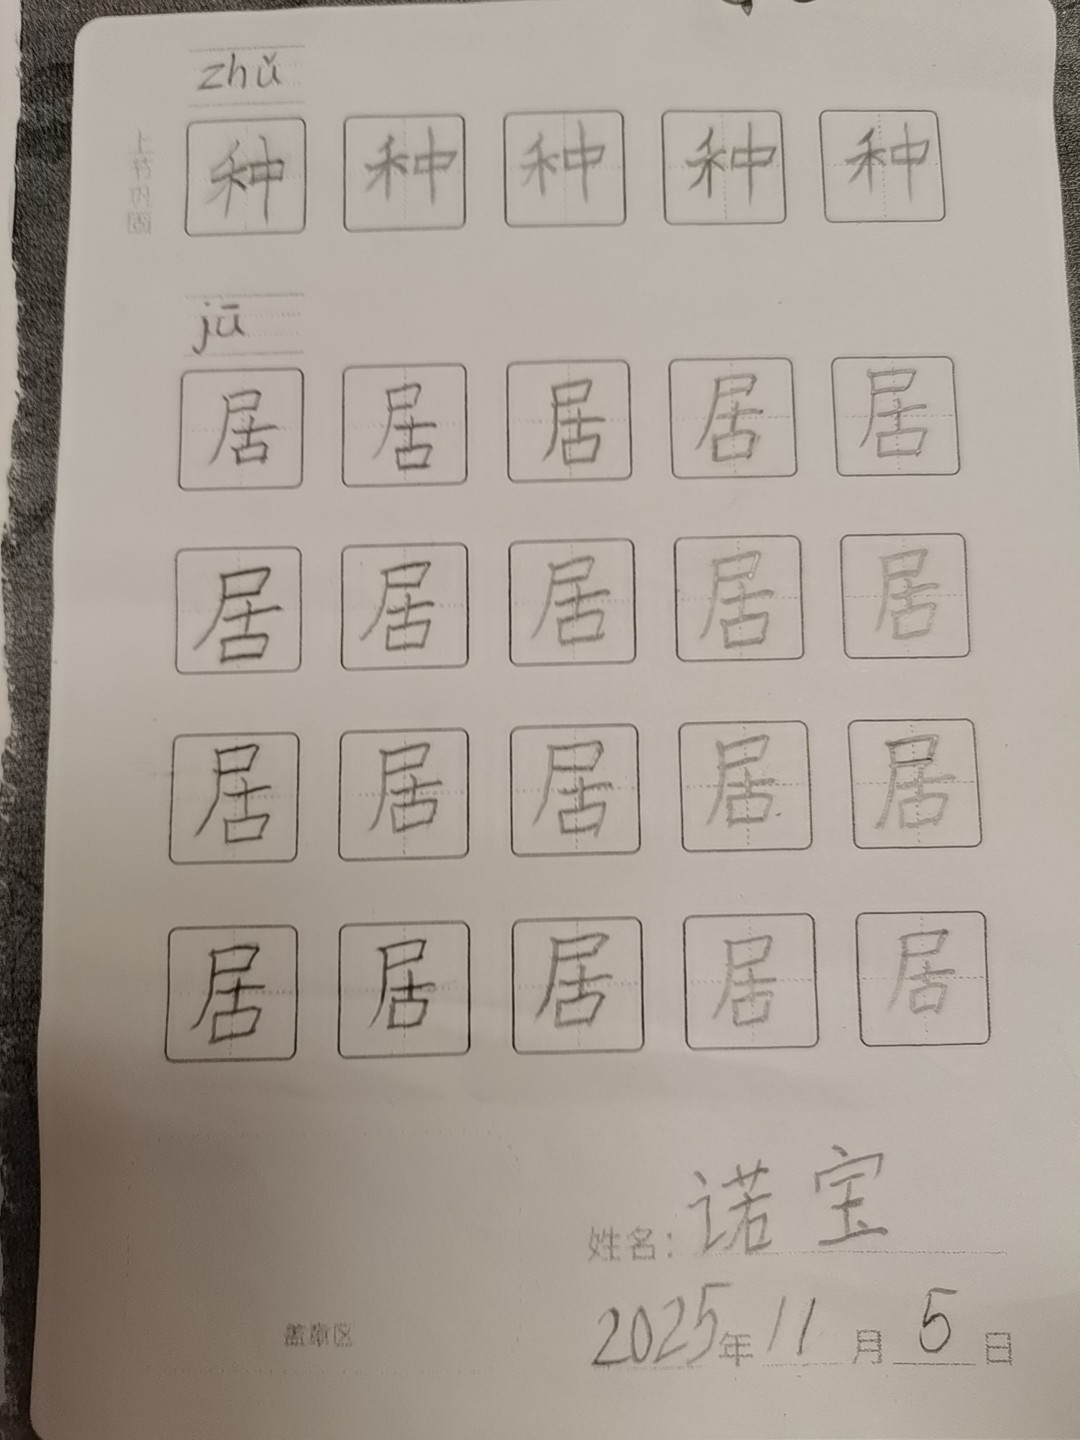 zhǔ
上节巩固
种 种 种 种 种
jū
居 居 居 居 居
居 居 居 居 居
居 居 居 居 居
居 居 居 居 居
姓名: 诺宝
盖章区
2025年11月5日